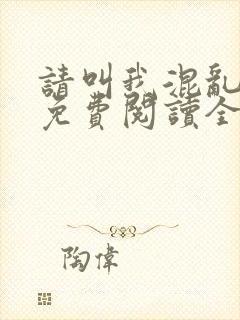 請叫我混亂
免費閱讀全
陶偉